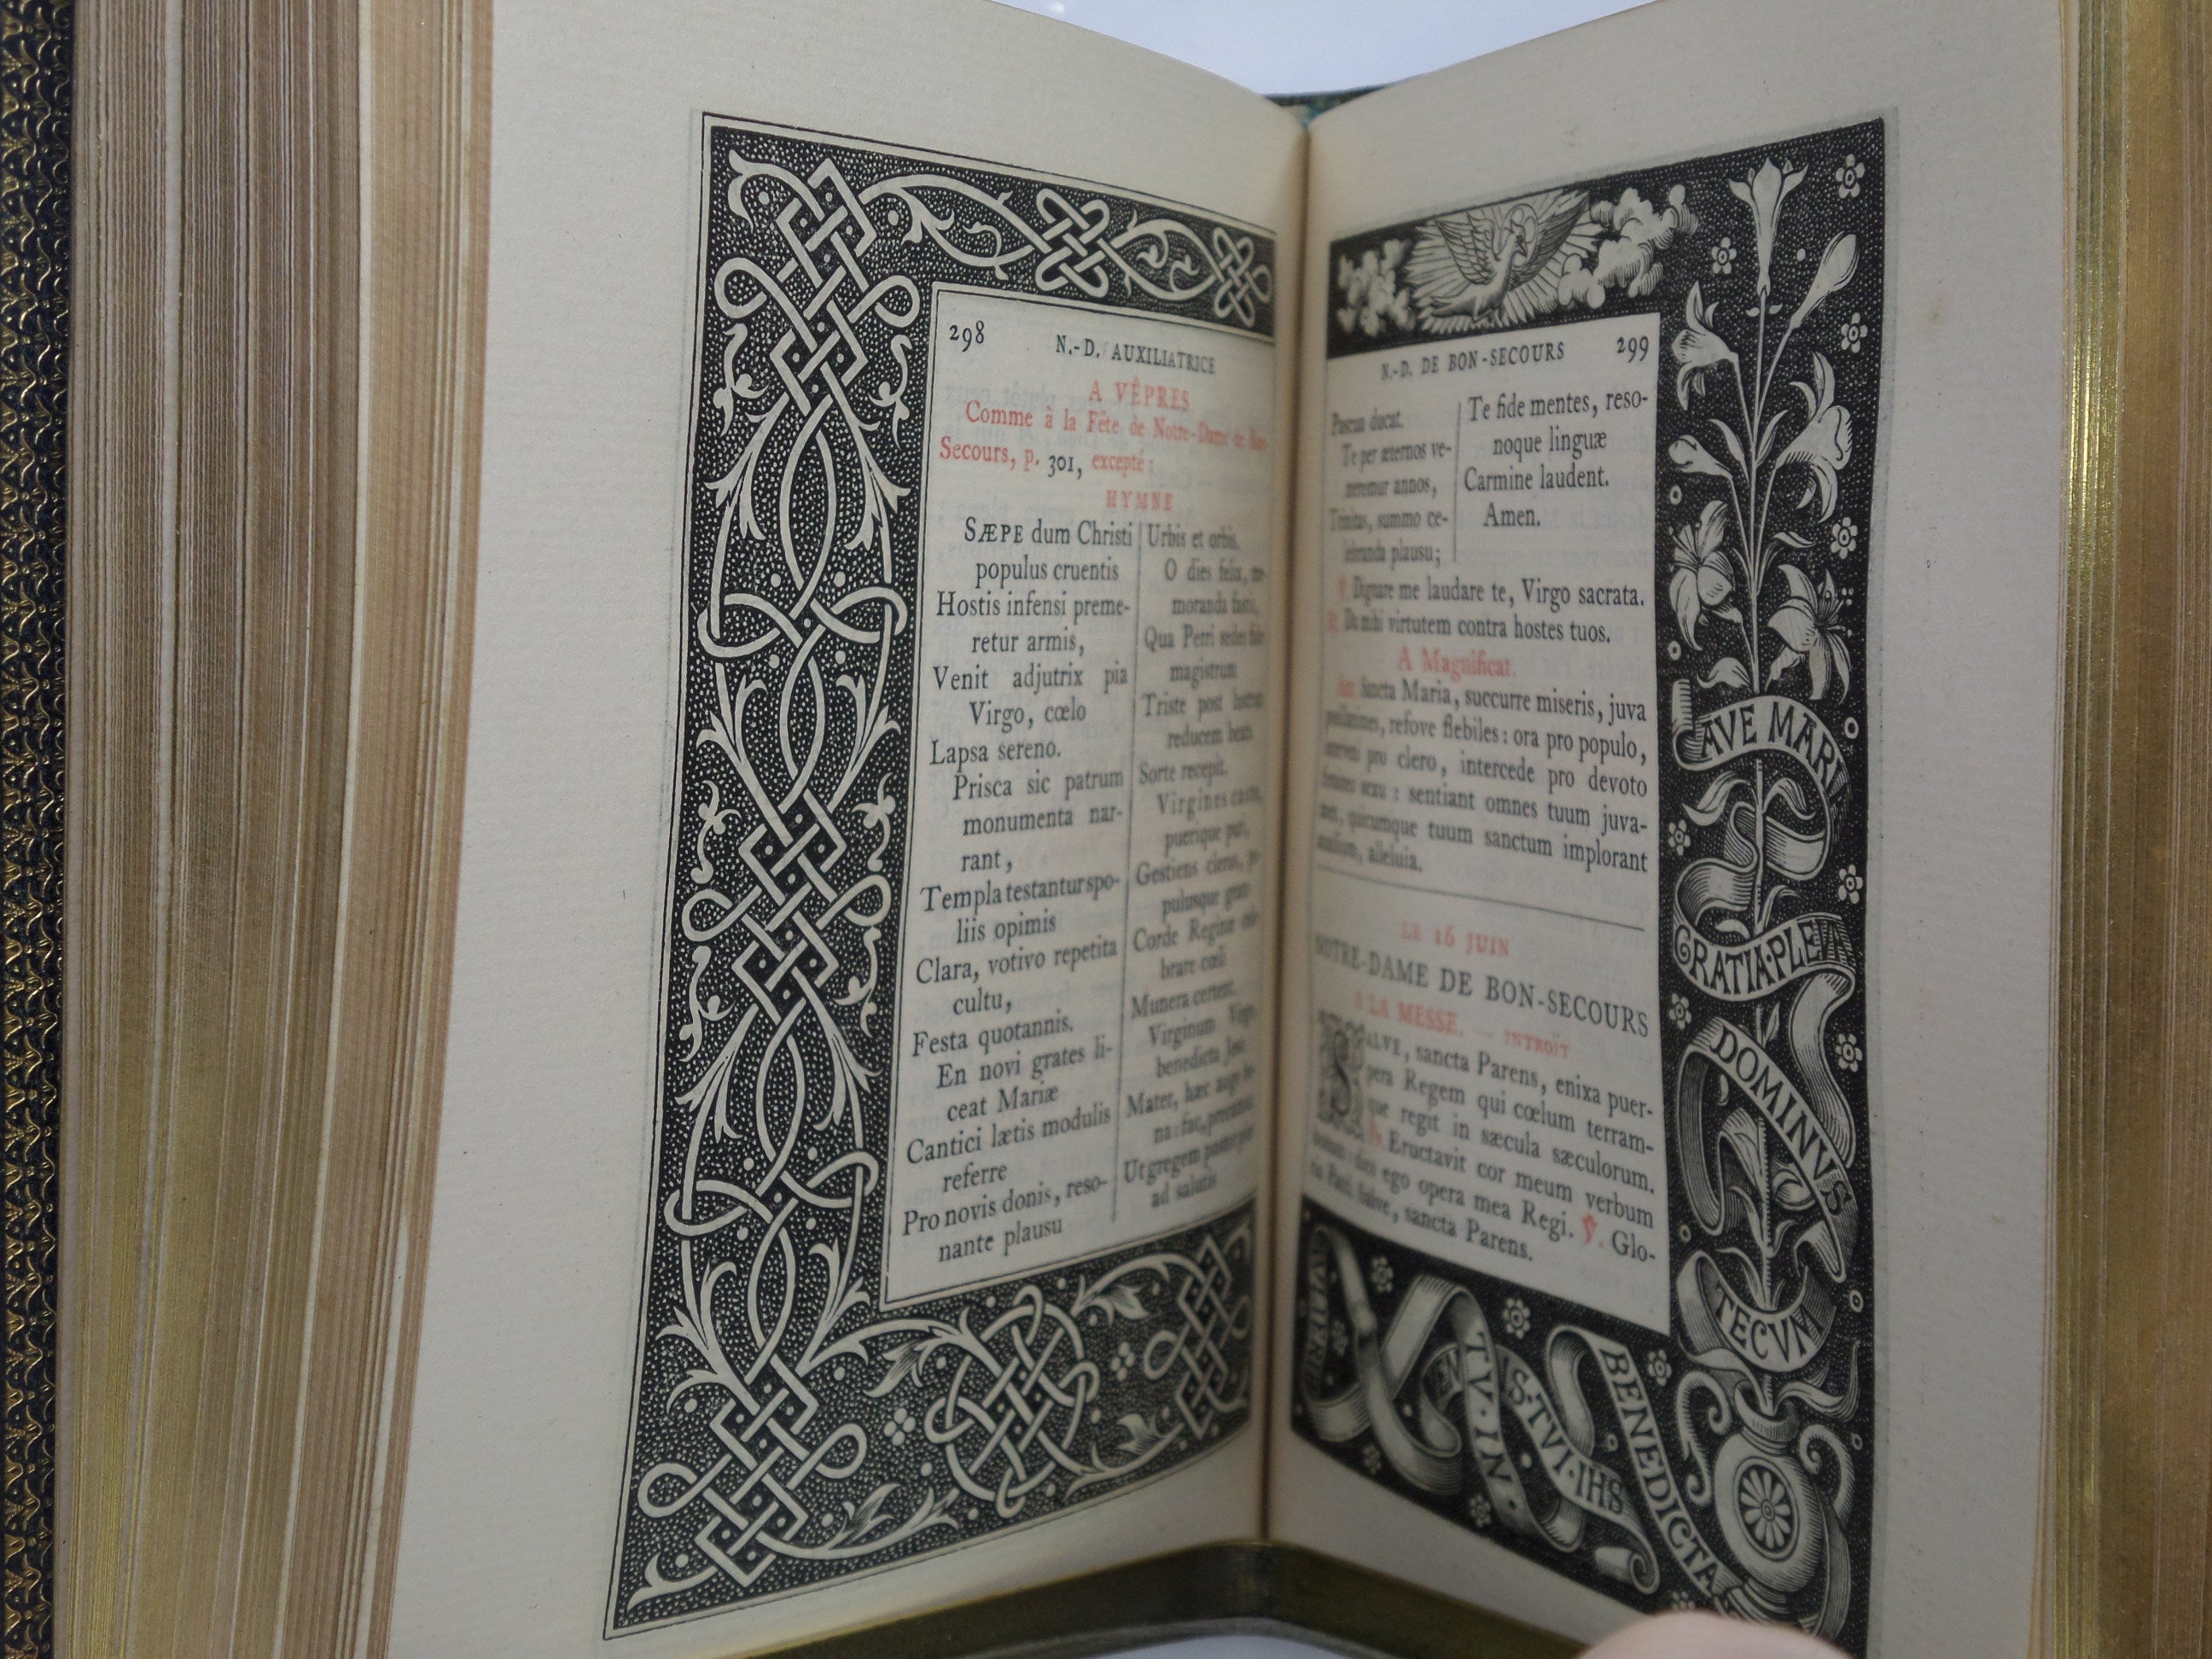 298
N.-D. AUXILIATRICE
A VÊPRES
Comme à la Fête de Notre-Dame de Bon-
Secours, p. 301, excepté :
HYMNE
SÆPE dum Christi
populus cruentis
Hostis infensi preme-
retur armis,
Venit adjutrix pia
Virgo, cœlo
Lapsa sereno.
Prisca sic patrum
monumenta nar-
rant,
Templa testantur spo-
liis opimis
Clara, votivo repetita
cultu,
Festa quotannis.
En novi grates li-
ceat Mariæ
Cantici lætis modulis
referre
Pro novis donis, reso-
nante plausu
Urbis et orbis.
O dies felix, me-
moranda fastis,
Qua Petri sedes fidei
magistrum
Triste post lustrum
reducem beata
Sorte recepit.
Virgines castæ,
puerique puri,
Gestiens clerus, po-
pulusque grato
Corde Reginæ cele-
brare cœli
Munera certent.
Virginum Virgo,
benedicta Jesu
Mater, hæc auge bo-
na : fac, precamur
Ut gregem pastor pius
ad salutis
N.-D. DE BON-SECOURS
299
Pascua ducat.
Te per æternos ve-
neremur annos,
Trinitas, summo ce-
lebranda plausu ;
Te fide mentes, reso-
noque linguæ
Carmine laudent.
Amen.
℣. Dignare me laudare te, Virgo sacrata.
℟. Da mihi virtutem contra hostes tuos.
A Magnificat.
Ant. Sancta Maria, succurre miseris, juva
pusillanimes, refove flebiles : ora pro populo,
interveni pro clero, intercede pro devoto
femineo sexu : sentiant omnes tuum juva-
men, quicumque tuum sanctum implorant
auxilium, alleluia.
LE 16 JUIN
NOTRE-DAME DE BON-SECOURS
A LA MESSE. — INTROÏT
SALVE, sancta Parens, enixa puer-
pera Regem qui cœlum terram-
que regit in sæcula sæculorum.
Ps. Eructavit cor meum verbum
bonum : dico ego opera mea Regi. ℣. Glo-
ria Patri. Salve, sancta Parens.
AVE MARI
GRATIA·PLEN
DOMINVS
TECVM
BENEDICTA
TV·IN·
S·TVI·IHS